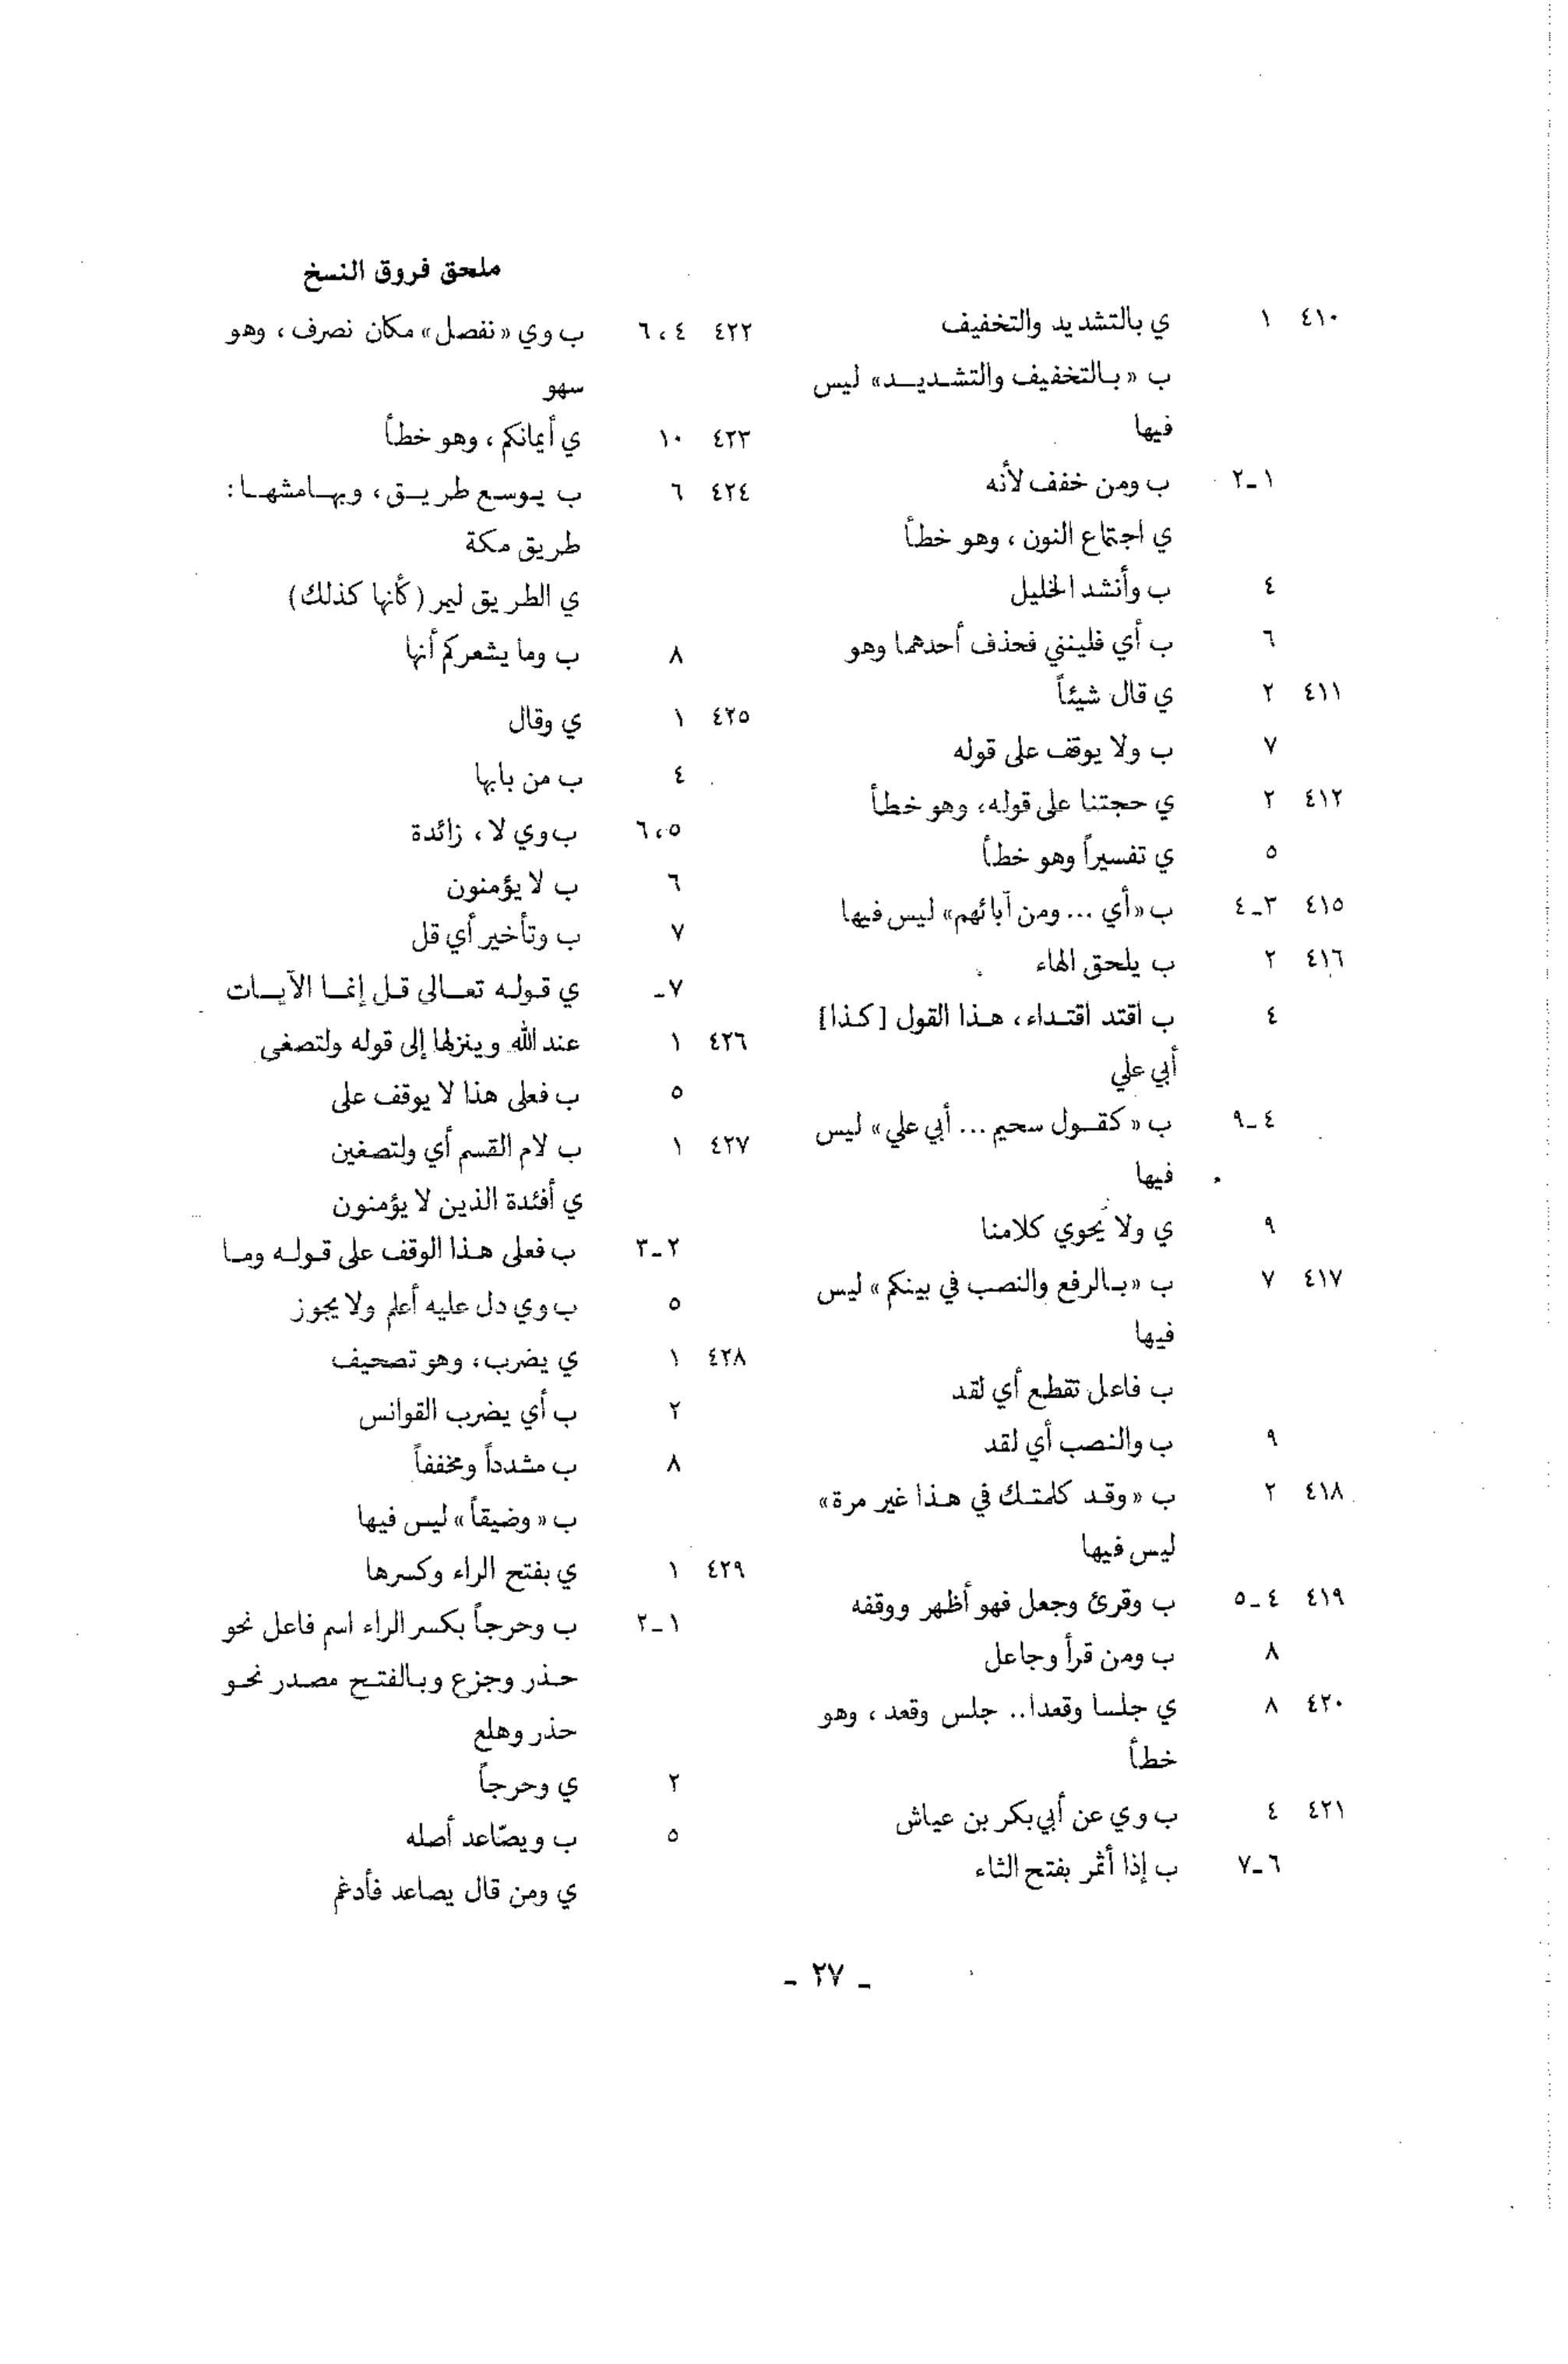 ملحق فروق النسخ
٤١٠ ١ ي بالتشديد والتخفيف
ب «بالتخفيف والتشديد» ليس
فيها
١ـ٢ ب ومن خفف لأنه
ي اجتماع النون ، وهو خطأ
٤ ب وأنشد الخليل
٦ ب أي فلينني فحذف أحدهما وهو
٤١١ ٢ ي قال شيئاً
٧ ب ولا يوقف على قوله
٤١٢ ٢ ي حجتنا على قوله، وهو خطأ
٥ ي تفسيراً وهو خطأ
٤١٥ ٣ـ٤ ب «أي ... ومن آبائهم» ليس فيها
٤١٦ ٢ ب يلحق الهاء
٤ ب اقتد اقتداء، هذا القول [كذا]
أبي علي
٤ـ٩ ب «كقول سحيم ... أبي علي» ليس
فيها
٩ ي ولا يحوي كلامنا
٤١٧ ٧ ب «بالرفع والنصب في بينكم» ليس
فيها
ب فاعل تقطع أي لقد
٩ ب والنصب أي لقد
٤١٨ ٢ ب «وقد كلمتك في هذا غير مرة»
ليس فيها
٤١٩ ٤ـ٥ ب وقرئ وجعل فهو أظهر ووقفه
٨ ب ومن قرأ وجاعل
٤٢٠ ٨ ي جلسا وقعدا .. جلس وقعد ، وهو
خطأ
٤٢١ ٤ ب وي عن أبي بكر بن عياش
٦ـ٧ ب إذا أثمر بفتح الثاء
٤٢٢ ٤ ، ٦ ب وي «نفصل» مكان نصرف ، وهو
سهو
٤٢٣ ١٠ ي أيمانكم ، وهو خطأ
٤٢٤ ٦ ب يوسع طريق، وبهامشها:
طريق مكة
ي الطريق ليمر (كأنها كذلك)
٨ ب وما يشعركم أنها
٤٢٥ ١ ي وقال
٤ ب من بابها
٥ ، ٦ ب وي لا ، زائدة
٦ ب لا يؤمنون
٧ ب وتأخير أي قل
٧ـ ي قوله تعالى قل إنما الآيات
٤٢٦ ١ عند الله وينزلها إلى قوله ولتصغى
٥ ب فعلى هذا لا يوقف على
٤٢٧ ١ ب لام القسم أي ولتصغين
ي أفئدة الذين لا يؤمنون
٢ـ٣ ب فعلى هذا الوقف على قوله وما
٥ ب وي دل عليه أعلم ولا يجوز
٤٢٨ ١ ي يضرب، وهو تصحيف
٢ ب أي يضرب القوانس
٨ ب مشدداً ومخففاً
ب «وضيقاً» ليس فيها
٤٢٩ ١ ي بفتح الراء وكسرها
١ـ٢ ب وحرجاً بكسر الراء اسم فاعل نحو
حذر وجزع وبالفتح مصدر نحو
حذر وهلع
٢ ي وحرجاً
٥ ب ويصّاعد أصله
ي ومن قال يصاعد فأدغم
ـ ٢٧ ـ